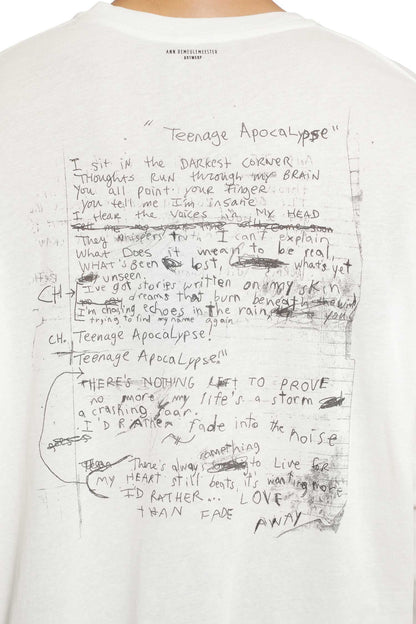 ANN DEMEULEMEESTER
ANTWERP
"Teenage ApocaLypse"
I sit in the DARKEST CORNER
Thoughts RUN through my BRAIN
You all point your finger
you tell me I'm insane
I Hear the VOICES in MY HEAD
They whispers truth I can't explain
What Does it mean to be real,
WHAT'S BEEN lost, what's yet
unseen.
I've got stories written on my skin
dreams that burn beneath
I'm chasing echoes in the rain
trying to find my name again
CH.
CH. Teenage ApocaLypse!
Teenage ApocaLypse!"
THERE'S NOTHING LEFT TO PROVE
no more, my life's a storm
a crashing roar.
I'D RAther fade into the Noise
something
There's always to Live for
MY HEART still beats, it's wanting more
I'D RATHER... LOVE
THAN FADE
AWAY